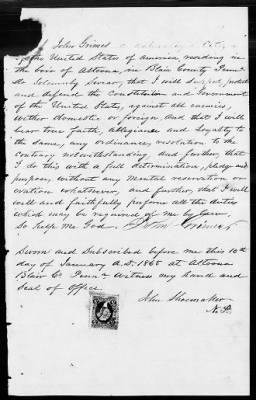 I John Grimes a Citizen
of the United States of America residing in
the Co'ir of Altoona, in Blair County Penn'a
do Solemnly Swear, that I will Support, protect
and defend the Constitution and Government
of the United States, against all enemies,
wither domestic or foreign. And that I will
bear true faith, allegiance and loyalty to
the same, any ordinance, resolution to the
contrary notwithstanding. And further, that
I do this with a full determination, pledge and
purpose, without any mental reservation or
evation whatsoever, and further, that I will
well and faithfully perform all the duties
which may be required of me by law,
So help Me God. John Grimes
Sworn and Subscribed before me this 10th
day of January A.D. 1865 at Altoona
Blair Co. Penn'a Witness my hand and
Seal of Office
John Shoemaker
N.P.